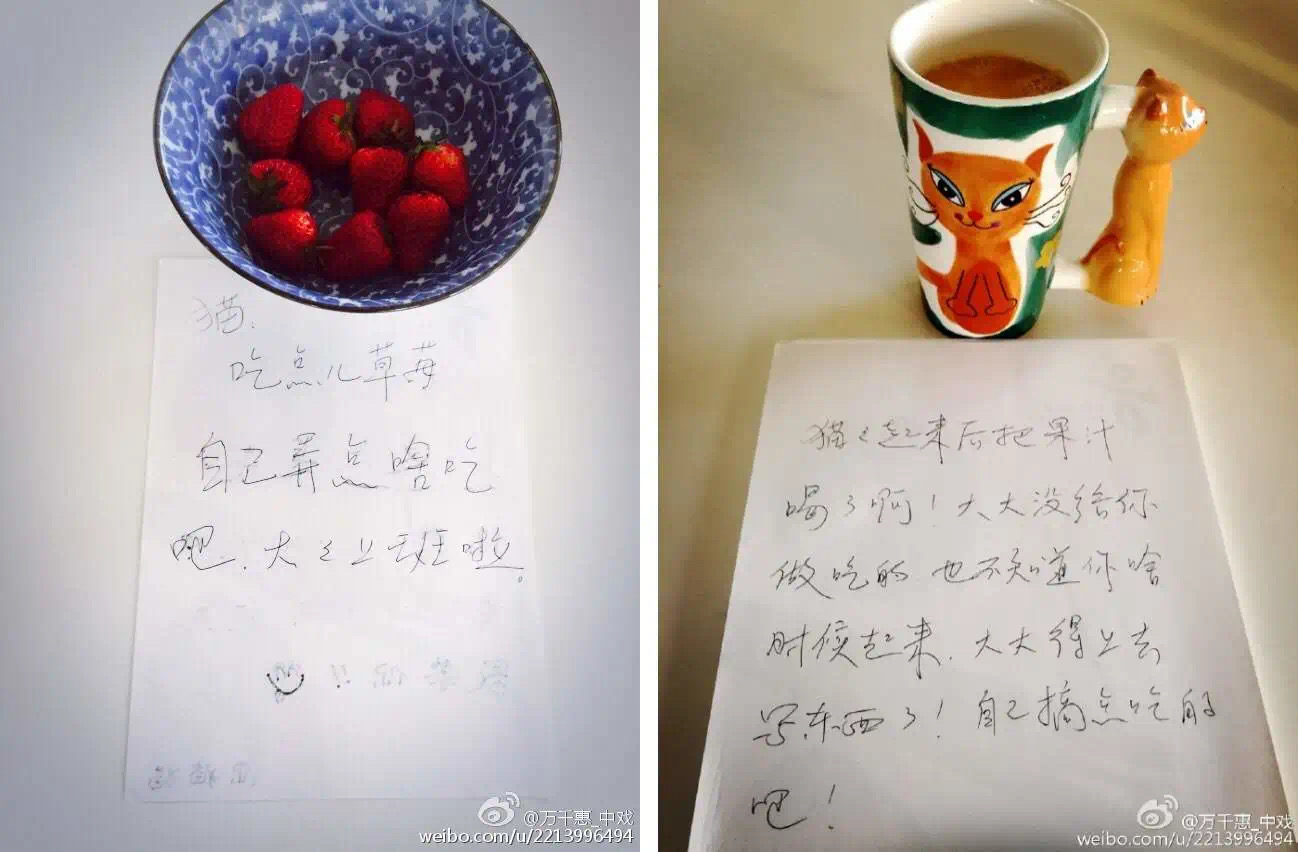 猫.
吃点儿草莓
自己弄点啥吃
吧.大々上班啦.
@万千惠_中戏
weibo.com/u/2213996494
猫々起来后把果汁
喝了啊！大大没给你
做吃的 也不知道你啥
时候起来.大大得上去
写东西了！自己搞点吃的
吧！
@万千惠_中戏
weibo.com/u/2213996494